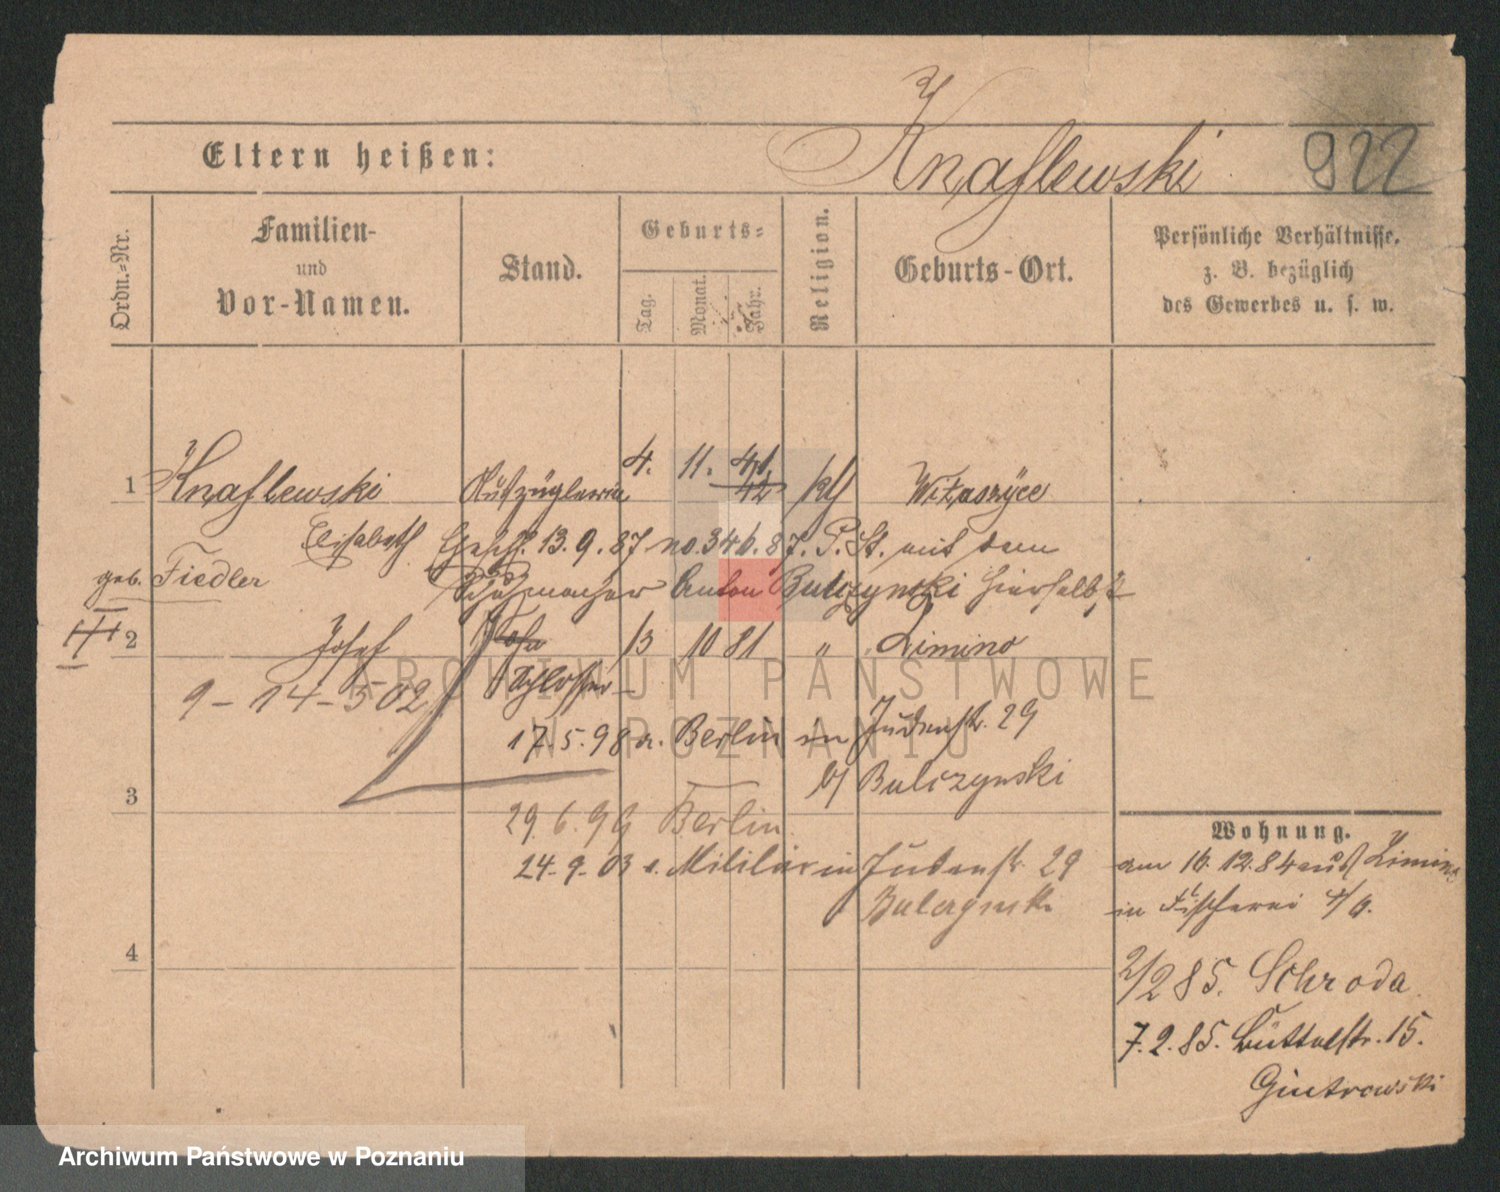 Knaflewski 922
Eltern heißen:
Ordn.-Nr.
Familien-
und
Vor-Namen.
Stand.
Geburts-
Tag.
Monat.
Jahr.
Religion.
Geburts-Ort.
Persönliche Verhältnisse,
z. B. bezüglich
des Gewerbes u. s. w.
1 Knaflewski Auszüglerin 4. 11. 41 kth Witaszyce
42
Elisabeth Ehesch. 13.9.87 no. 346.87. P. St. mit dem
geb. Fiedler Schuhmacher Anton Bulczynski hierselbst
III 2 Josef 13 10 81 " Zimino
9-14-502 Schlosser
17.5.98 a. Berlin in Judenstr. 29
3 b/ Bulczynski
29.6.99 Berlin
24.9.03 v. Militär in Judenstr. 29
Bulczynski
4
Wohnung.
am 16.12.84 aus Zimino
in Fischerei 4/6.
2/2 85. Schroda
7.2.85. Büttelstr. 15.
Gintrowski
ARCHIWUM PAŃSTWOWE
W POZNANIU
Archiwum Państwowe w Poznaniu